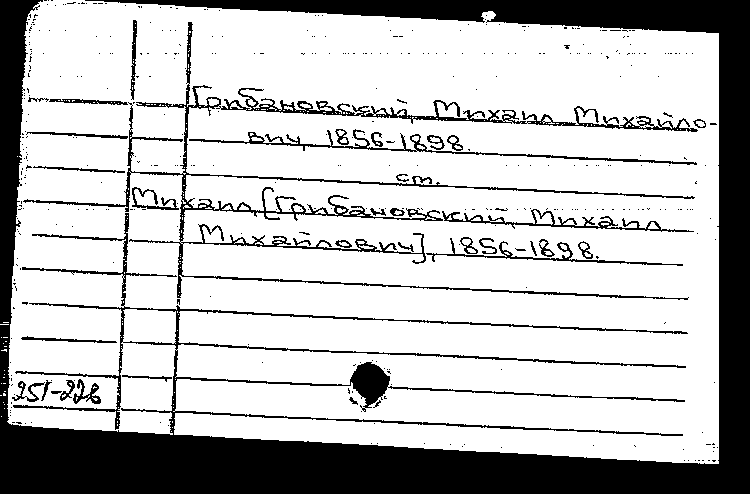 Грибановский, Михаил Михайло-
вич, 1856-1898.
см.
Михаил, [Грибановский, Михаил
Михайлович], 1856-1898.
251-228